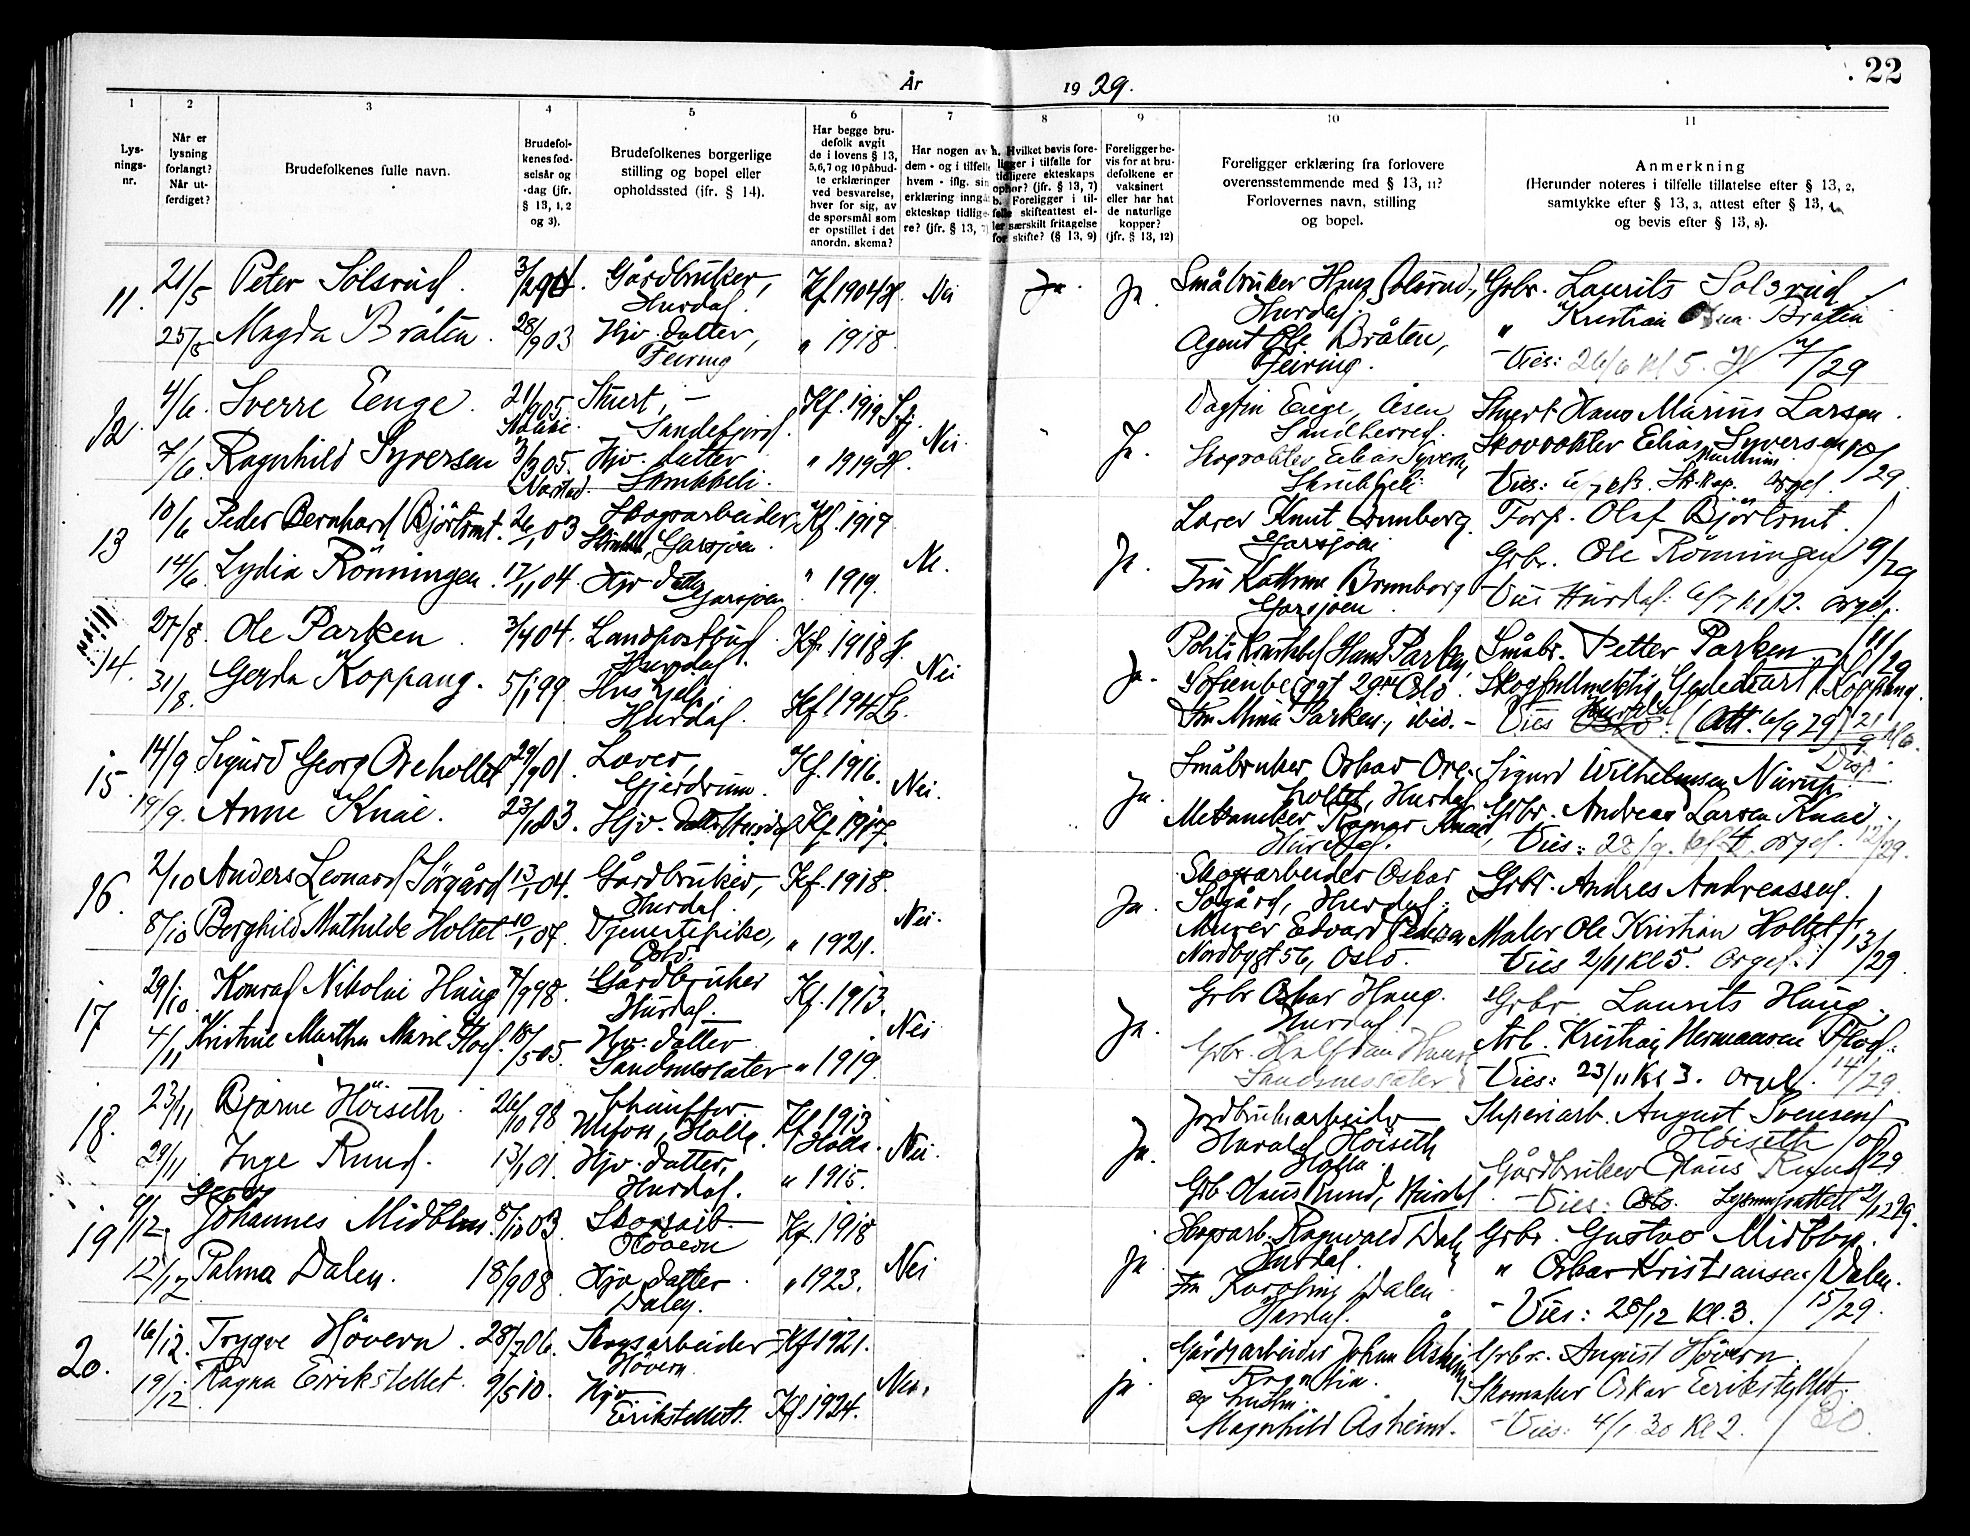 År 1929. 22
1 2 3 4 5 6 7 8 9 10 11
Lys-
nings-
nr.
Når er
lysning
forlangt?
Når ut-
ferdiget?
Brudefolkenes fulle navn.
Brudefol-
kenes fød-
selsår og
-dag (jfr.
§ 13, 1, 2
og 3).
Brudefolkenes borgerlige
stilling og bopel eller
opholdssted (jfr. § 14).
Har begge bru-
defolk avgit
de i lovens § 13,
5,6,7 og 10 påbud-
te erklæringer
ved besvarelse,
hver for sig, av
de spørsmål som
er opstillet i det
anordn. skema?
Har nogen av
dem - og i tilfelle
hvem - iflg. sin
erklæring inngå
ekteskap tidlige-
re? (jfr. § 13, 7)
a. Hvilket bevis fore-
ligger i tilfelle for
tidligere ekteskaps
ophør? (jfr. § 13, 7)
b. Foreligger i til-
felle skifteattest el-
ler særskilt fritagelse
for skifte? (§ 13, 9)
Foreligger be-
vis for at bru-
defolkene er
vaksinert
eller har hat
de naturlige
kopper?
(jfr. § 13, 12)
Foreligger erklæring fra forlovere
overensstemmende med § 13, 11?
Forlovernes navn, stilling
og bopel.
Anmerkning
(Herunder noteres i tilfelle tillatelse efter § 13, 2,
samtykke efter § 13, 3, attest efter § 13, 4
og bevis efter § 13, 8).
11. 21/5 Peter Solsrud. Gårdbruker, Hurdal. Kf 1904 H. Nei Ja. Ja. Småbruker Hans Solsrud, Hurdal. Grbr. Laurits Solsrud
25/5 Magda Bråten. 28/9 03 Hjv. datter, Feiring " 1918. Agent Ole Bråten, Feiring. " Kristian Bråten
- Vies: 26/6 kl 5. 7/29
12. 4/6. Sverre Eenge. 21/9 05. Stuert, - Sandefjord. Kf. 1919 Nei Ja. Sandherred. Stuert Hans Marius Larsen.
7/6 Ragnhild Syversen 3/3 05. Hjv. datter " 1919 H. Skogvokter Elias Syversen 29.
13 10/6 Peder Bernhard Björtomt. 26/1 03 Skogsarbeider, Garsjøen. Kf. 1917 Ne. Ja. Knut Brunborg Garsjøen Forp. Olaf Björtomt.
14/6 Lydia Rönningen. 17/11 04. Hjv datter Garsjøen " 1919. Fru Kathrine Brunborg Garsjøen. Grbr. Ole Rönningen 9/29
Vies Hurdal: 6/7 kl 12. orgel.
14. 27/8. Ole Parken. 3/4 04. Landpostbud. Hurdal. Kf. 1918 H. Nei Ja. Politikonstabel Hans Parken, Sofienberggt 29 Oslo. Småbr. Petter Parken 11/29
31/8. Gerda Koppang. 5/1 99 Hushjelp, Hurdal. Fru Mina Parken, ibid. - Skogfullmektig Koppang.
Vies Hurdal (Att. 6/9 29) 21/9 kl 6.
15. 14/9 Sigurd Georg Oreholtet 29/9 01. Laver, Gjerdrum. Kf. 1916. Nei. Ja. Småbruker Oskar Oreholtet, Hurdal Sigurd Wilhelmsen
19/9. Anne Knai. 23/1 03. Hjv. datter Hurdal Kf. 1917. Mekaniker Ragnar Knai, Hurdal. Grbr. Andreas Larsen Knai.
Vies: 28/9. kl 4. orgel. 12/29.
16. 2/10 Anders Leonard Sörgård 13/1 04. Gårdbruker, Hurdal. Kf. 1918. Nei. Ja. Skogsarbeider Oskar Sögård, Hurdal. Grbr. Andres Andreassen.
8/10 Borghild Mathilde Holtet 10/1 07. Tjenestepike, Oslo. " 1921. Murer Edvard Pedersen Nordbygt 56, Oslo. Maler Ole Kristian Holtet
Vies 2/11 kl 5. Orgel. 13/29.
17 29/10 Konrad Nikolai Haug 7/9 98. Gårdbruker Hurdal. Kf. 1913. Nei Ja. Grbr Oskar Haug. Hurdal. Grbr. Laurits Haug.
4/11 Kristine Martha Marie Flod. 18/5 05. Hjv. datter Sandnessæter " 1919. Grbr. Halfdan Haug Sandnessæter Arb. Kristian Hermansen Flod.
Vies: 23/11 Kl 3. Orgel. 14/29.
18. 23/11 Bjarne Höiseth. 26/10 98 Chauffør Ulefoss, Holla. Kf. 1913 Holla. Nei. Ja. Jordbruksarbeider Harald Höiseth Holla. August Svensen Höiseth
29/11 Inga Ruud. 13/1 01. Hjv. datter, Hurdal. " 1915. Grb Olaus Ruud, Hurdal. Gårdbruker Hans Ruud 29
- Vies: Oslo. Lysningsattest 2/12 29.
19 9/12. Johannes Midtbön. 5/10 03 Skogsarb. Høvern Kf. 1918 Nei Ja. Skogsarb. Ragnvald Dalen Hurdal. Grbr. Gustav Midtbön.
12/12 Palma Dalen. 18/9 08 Hjv. datter Dalen. " 1923. Fru Karoline Dalen Hurdal. " Oskar Kristiansen Dalen.
- Vies: 28/12 Kl. 3. 15/29.
20. 16/12. Trygve Hövern. 28/7 06. Skogsarbeider Hövern. Kf 1921. Nei. ja. Gårdsarbeider Johan Åsheim Grbr. August Hövern.
19/12 Ragna Eirikstellet. 9/5 10. Hjv Eirikstellet. Kf 1924. og hustru Magnhild Åsheim. Skomaker Oskar Eirikstellet.
- Vies: 4/1 30 kl 2. 30.